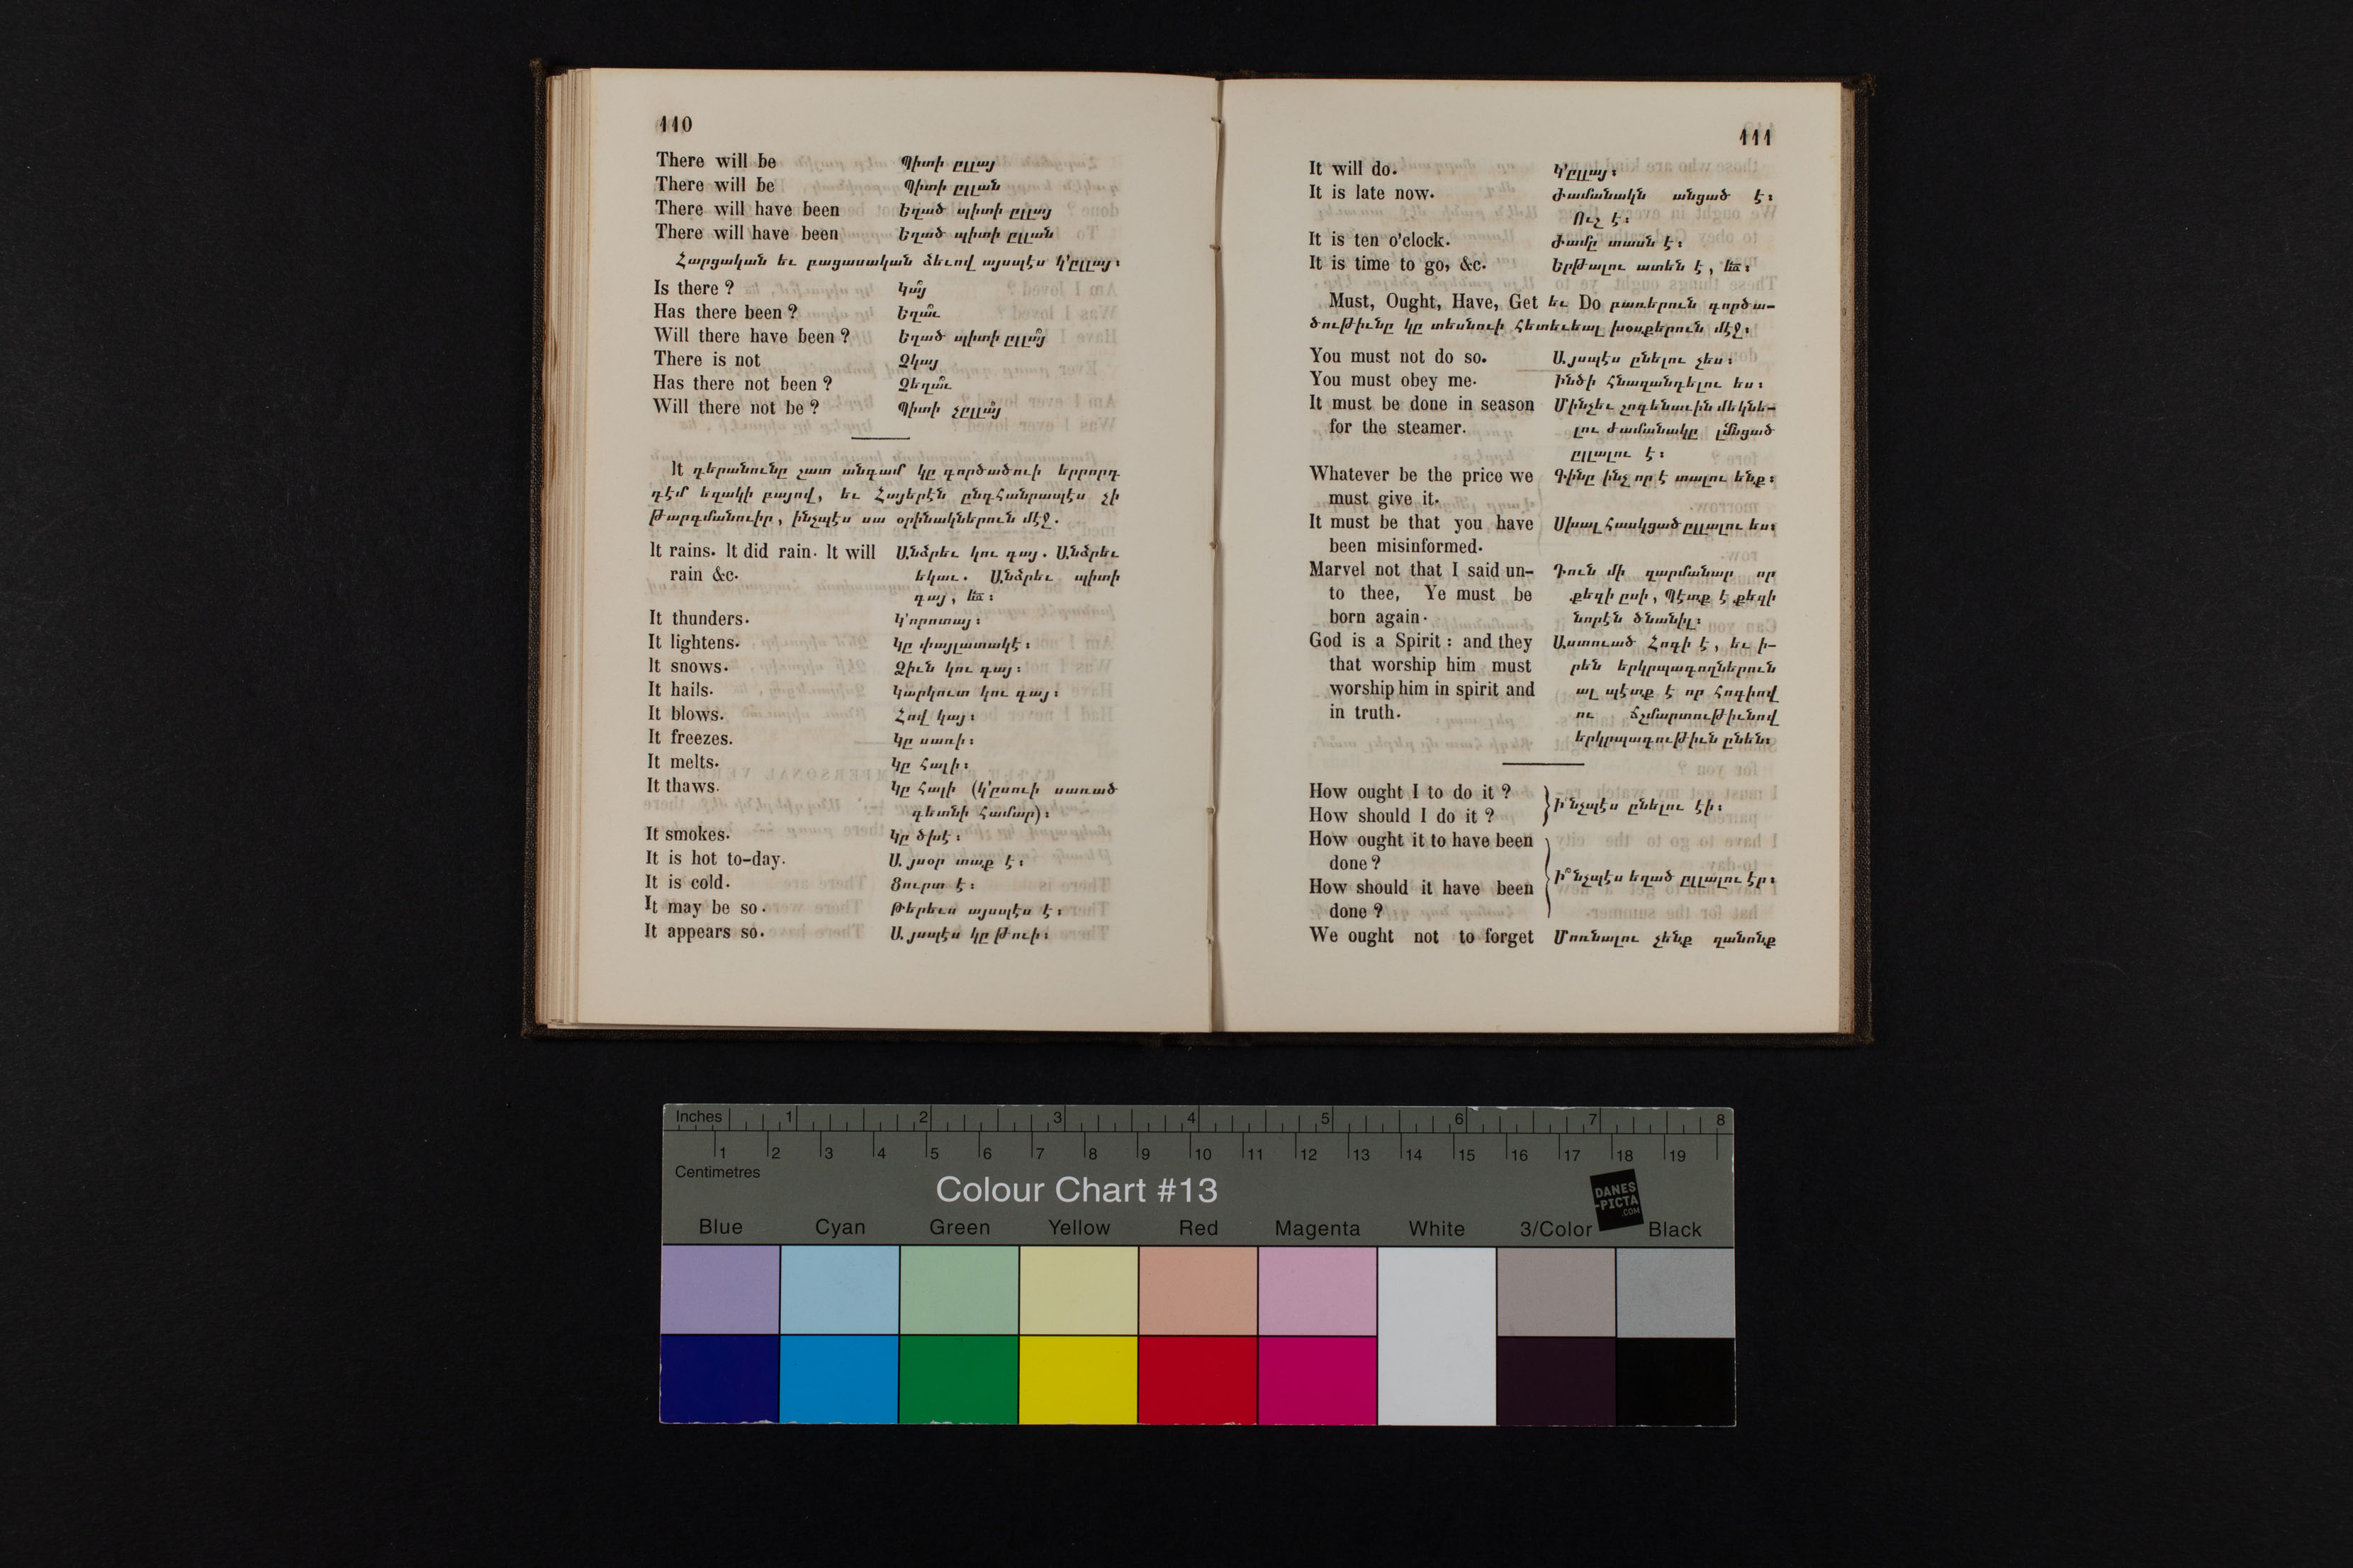 110
There will be Պիտի ըլլայ
There will be Պիտի ըլլան
There will have been Եղած պիտի ըլլայ
There will have been Եղած պիտի ըլլան
Հարցական եւ բացասական ձեւով այսպէս կ՚ըլլայ։
Is there ? Կա՞յ
Has there been ? Եղա՞ւ
Will there have been ? Եղած պիտի ըլլա՞յ
There is not Չկայ
Has there not been ? Չեղա՞ւ
Will there not be ? Պիտի չըլլա՞յ
It դերանունը շատ անգամ կը գործածուի երրորդ
դէմ եզակի բայով, եւ Հայերէն ընդհանրապէս չի
թարգմանուիր, ինչպէս սա օրինակներուն մէջ.
It rains. It did rain. It will Անձրեւ կու գայ. Անձրեւ
rain &c. եկաւ. Անձրեւ պիտի
գայ, ևն։
It thunders. Կ՚որոտայ։
It lightens. Կը փայլատակէ։
It snows. Ձիւն կու գայ։
It hails. Կարկուտ կու գայ։
It blows. Հով կայ։
It freezes. Կը սառի։
It melts. Կը հալի։
It thaws. Կը հալի (կ՚ըսուի սառած
գետնի համար)։
It smokes. Կը ծխէ։
It is hot to-day. Այսօր տաք է։
It is cold. Ցուրտ է։
It may be so. Թերեւս այսպէս է։
It appears so. Այսպէս կը թուի։
111
It will do. Կ՚ըլլայ։
It is late now. Ժամանակն անցած է։
Ուշ է։
It is ten o'clock. Ժամը տասն է։
It is time to go, &c. Երթալու ատեն է, ևն։
Must, Ought, Have, Get եւ Do բառերուն գործա-
ծութիւնը կը տեսնուի հետեւեալ խօսքերուն մէջ։
You must not do so. Այսպէս ընելու չես։
You must obey me. Ինծի հնազանդելու ես։
It must be done in season Մինչեւ շոգենաւին մեկնե-
for the steamer. լու ժամանակը չանցած
ըլլալու է։
Whatever be the price we Գինը ինչ որ է տալու ենք։
must give it.
It must be that you have Սխալ հասկցած ըլլալու ես։
been misinformed.
Marvel not that I said un- Դուն մի զարմանար որ
to thee, Ye must be քեզի ըսի, Պէտք է քեզի
born again. նորէն ծնանիլ։
God is a Spirit : and they Աստուած Հոգի է, եւ ի-
that worship him must րեն երկրպագողներուն
worship him in spirit and ալ պէտք է որ հոգիով
in truth. ու ճշմարտութիւնով
երկրպագութիւն ընեն։
How ought I to do it ? Ի՞նչպէս ընելու էի։
How should I do it ?
How ought it to have been
done ?
Ի՞նչպէս եղած ըլլալու էր։
How should it have been
done ?
We ought not to forget Մոռնալու չենք զանոնք
Inches 1 2 3 4 5 6 7 8
1 2 3 4 5 6 7 8 9 10 11 12 13 14 15 16 17 18 19
Centimetres
Colour Chart #13
DANES
-PICTA
.COM
Blue Cyan Green Yellow Red Magenta White 3/Color Black